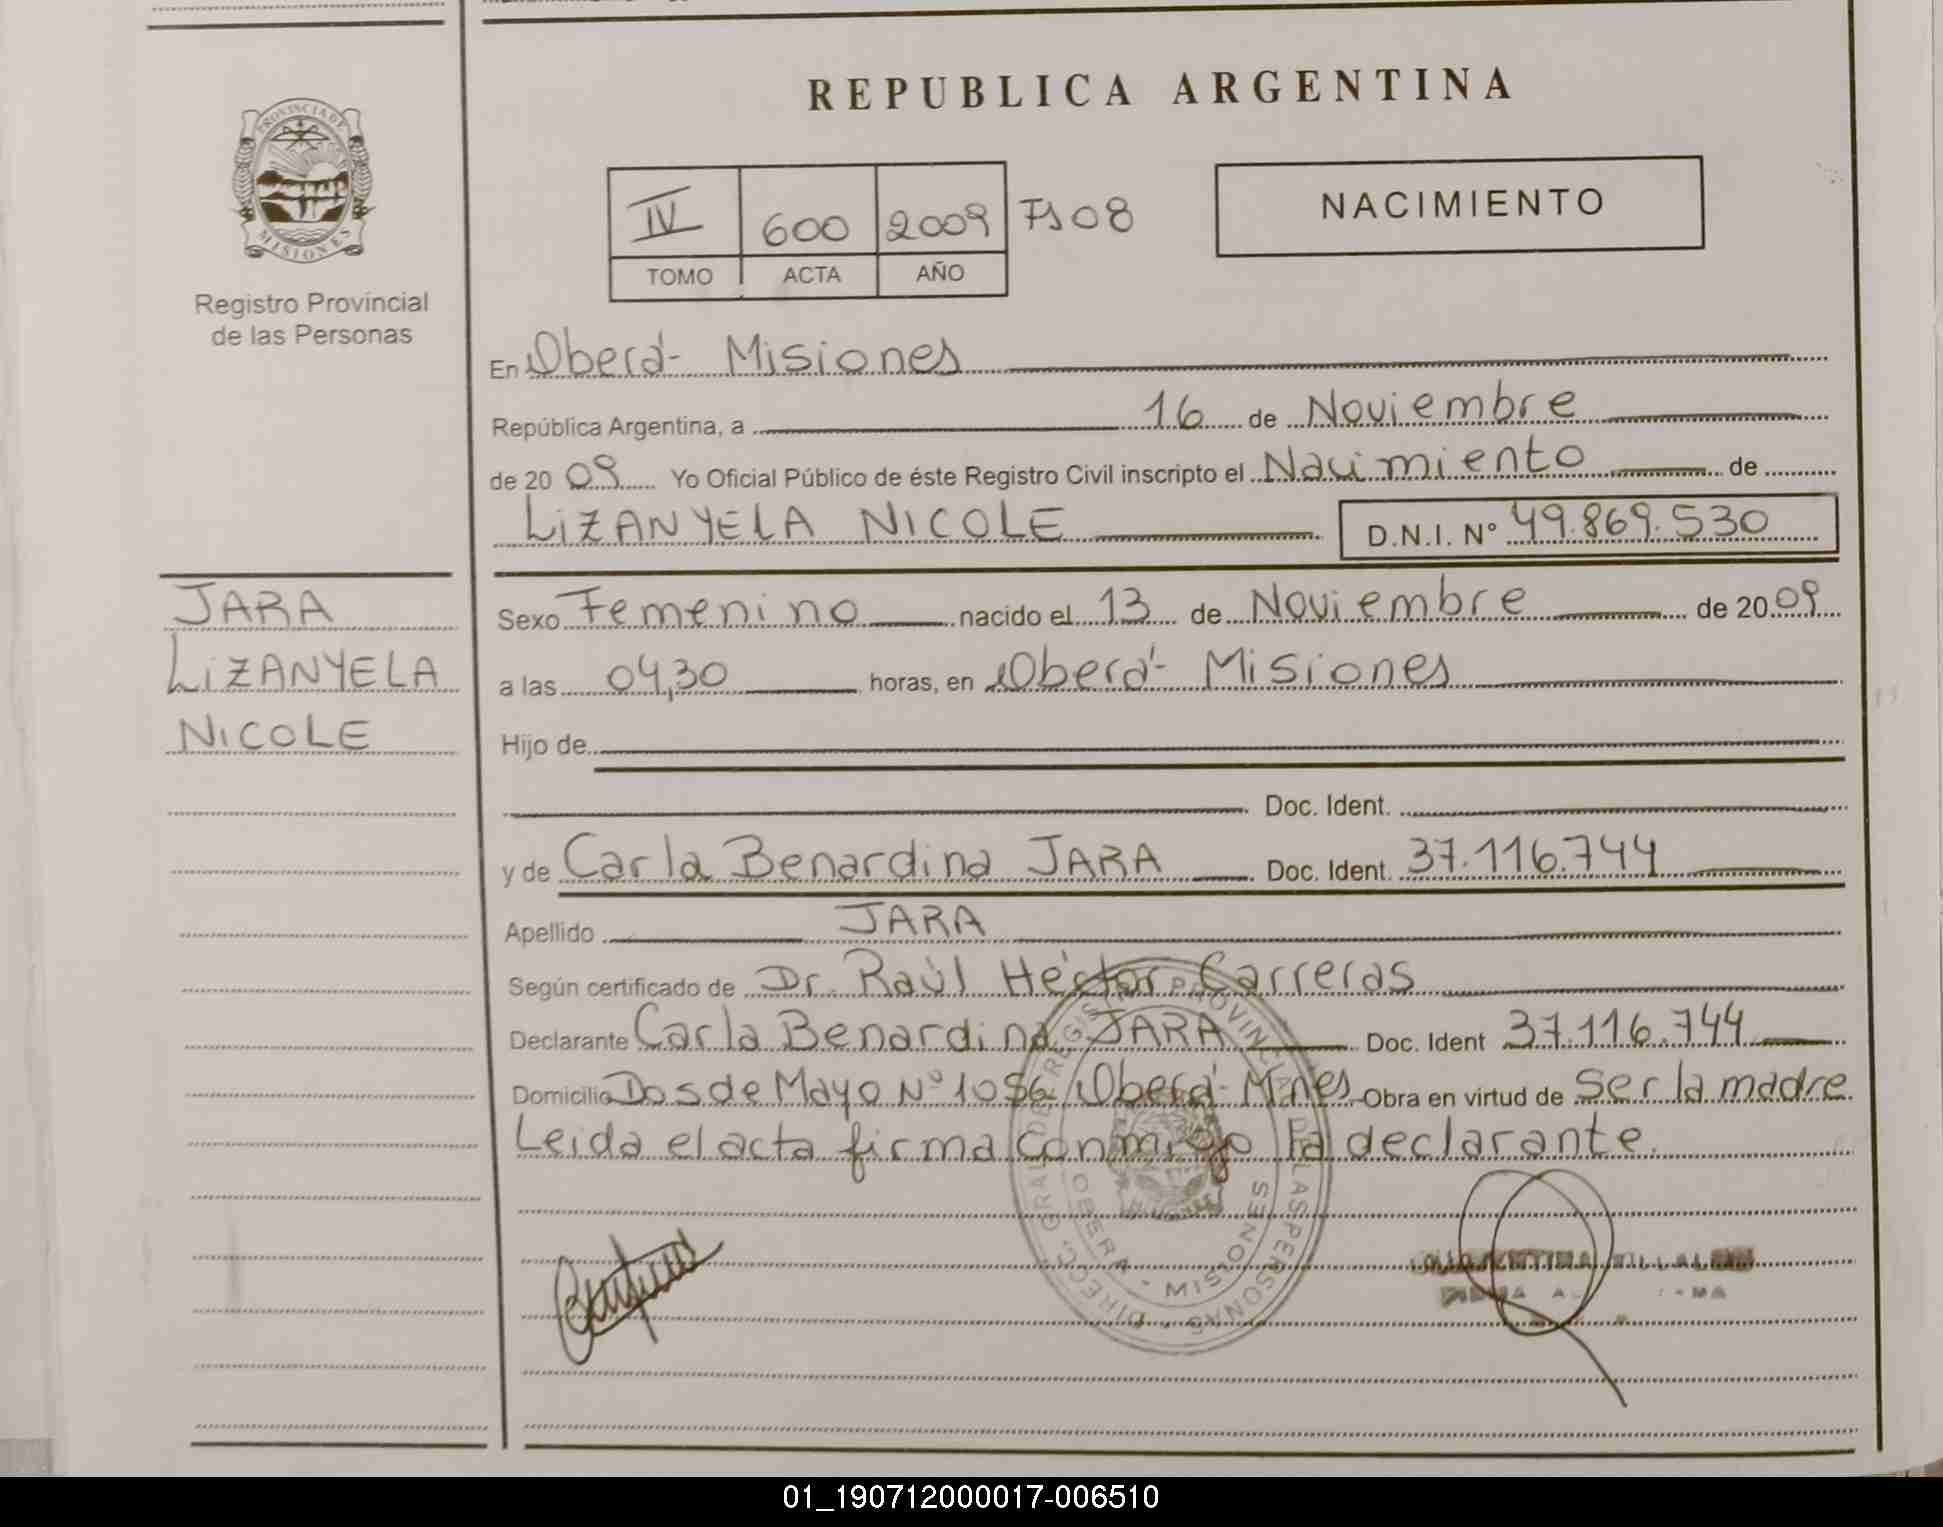 REPUBLICA ARGENTINA
PROVINCIA DE MISIONES
Registro Provincial
de las Personas
IV 600 2009 Fs 08
TOMO ACTA AÑO
NACIMIENTO
En Oberá - Misiones
República Argentina, a 16 de Noviembre
de 20 09 Yo Oficial Público de éste Registro Civil inscripto el Nacimiento de
LIZANYELA NICOLE D.N.I. Nº 49.869.530
JARA
LIZANYELA
NICOLE
Sexo Femenino nacido el 13 de Noviembre de 20 09
a las 04,30 horas, en Oberá - Misiones
Hijo de
Doc. Ident.
y de Carla Benardina JARA Doc. Ident. 37.116.744
Apellido JARA
Según certificado de Dr. Raúl Héctor Carreras
Declarante Carla Benardina JARA Doc. Ident 37.116.744
Domicilio Dos de Mayo Nº 1056 / Oberá - Mnes Obra en virtud de Ser la madre
Leida el acta firma conmigo la declarante.
DIRECC GRAL DE REGISTRO PROVINCIAL DE LAS PERSONAS
OBERA - MISIONES
01_190712000017-006510